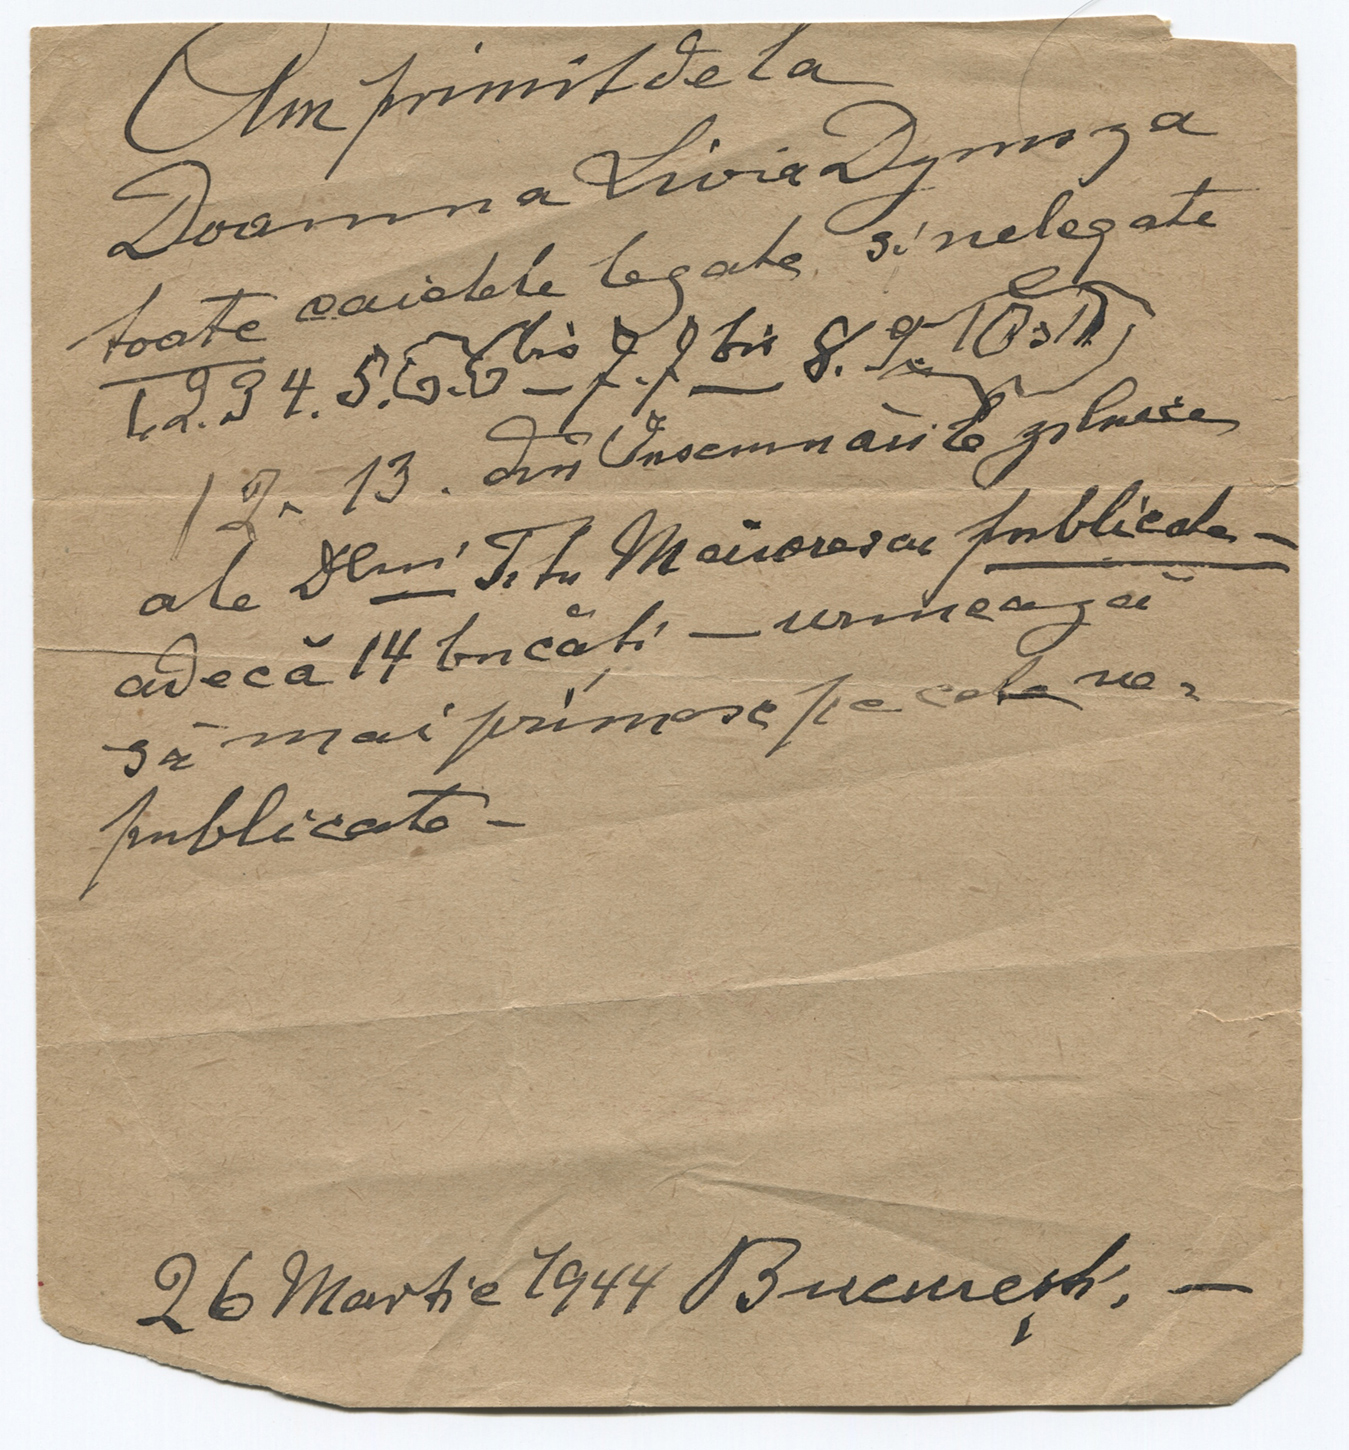 Am primit de la
Doamna Livia Dymsza
toate caietele legate si nelegate
1. 2. 3 4. 5. 6. 6 bis – 7. 7 bis 8. 9.
12. 13. din însemnările zilnice
ale Dlui Titu Maiorescu publicate –
adecă 14 bucăți – urmează
să mai primesc pe cele ne-
publicate –
26 Martie 1944 București. –